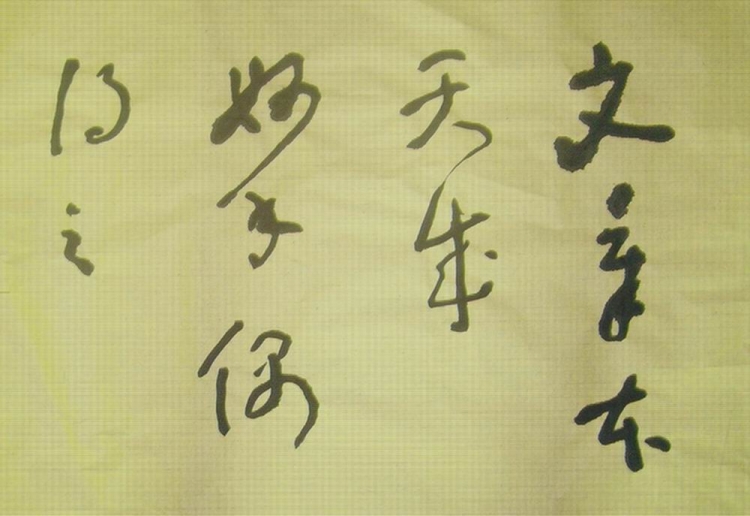 文章本
天成
妙手偶
得之